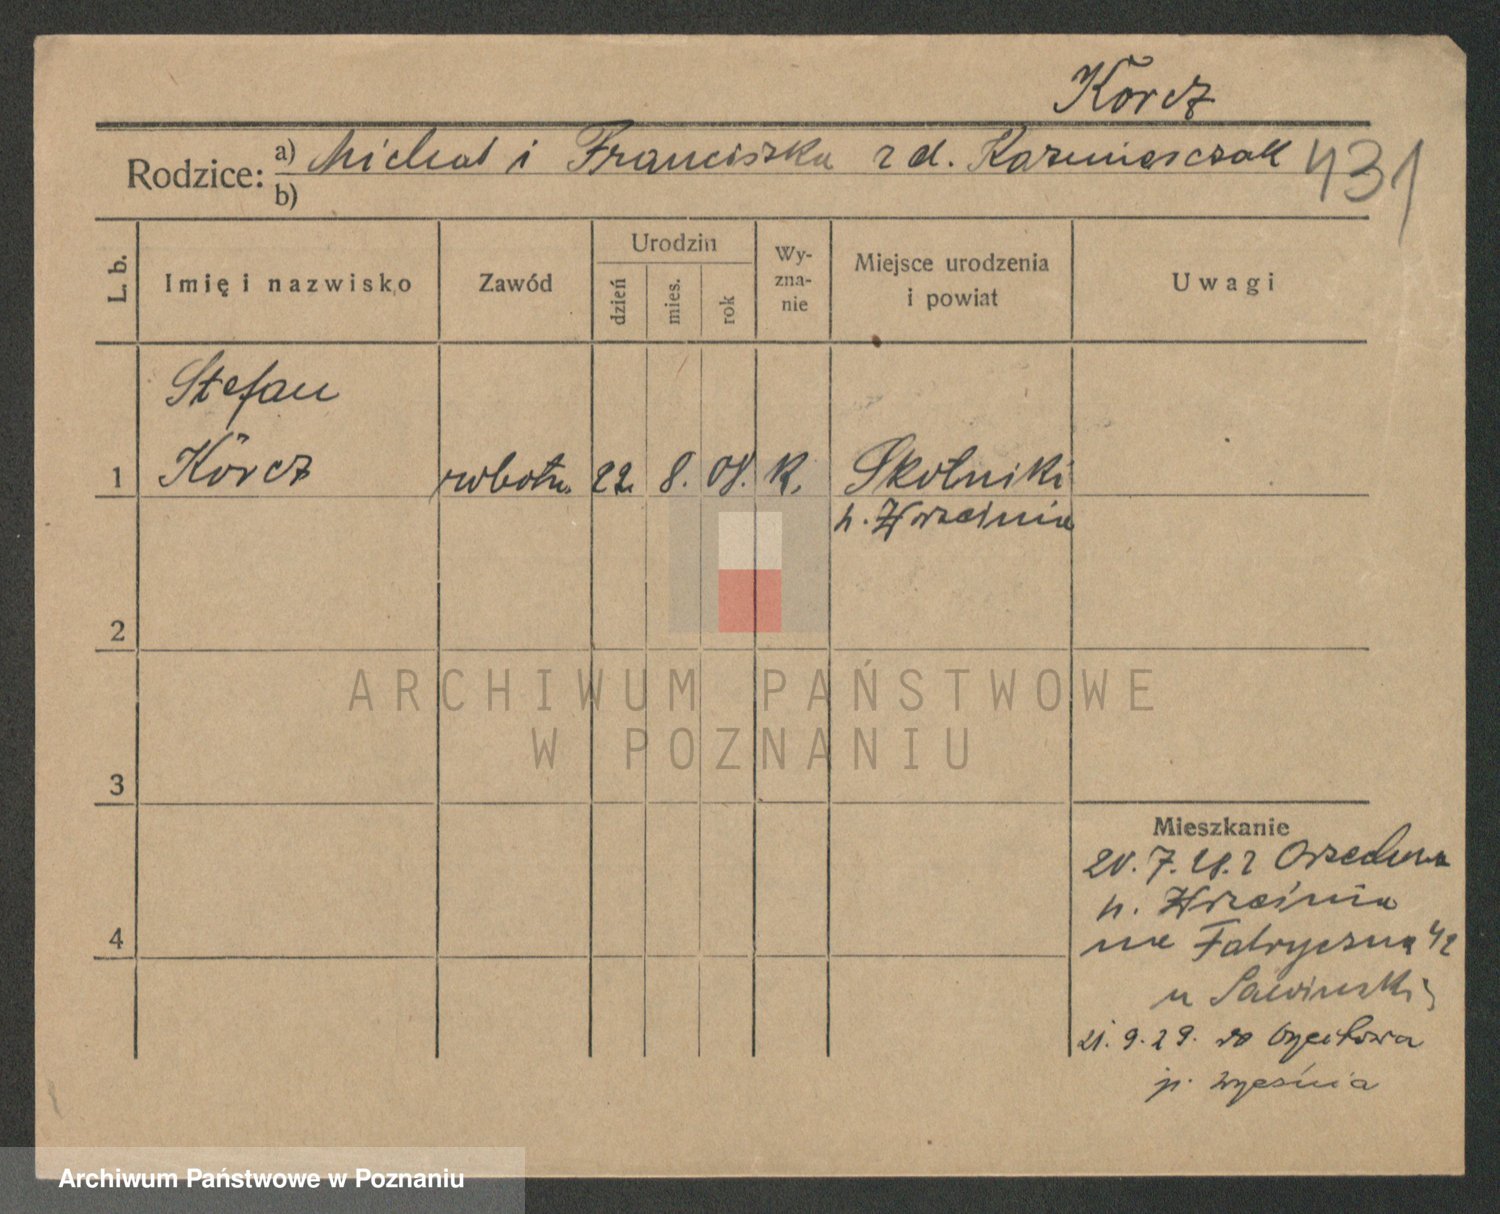 Körcz
Rodzice: a) Michał i Franciszka z d. Kazmierczak 431
b)
L. b.
Imię i nazwisko
Zawód
Urodzin
dzień
mies.
rok
Wy-
zna-
nie
Miejsce urodzenia
i powiat
Uwagi
Stefan
1 Körcz robotn. 22. 8. 08. k. Skotniki
p. Września
2
ARCHIWUM PAŃSTWOWE
W POZNANIU
3
Mieszkanie
20. 7. 28. z Orzechowa
p. Września
na Fabryczną 42
u Sawinski
4
21. 9. 29. do Orzechowa
p. Września
Archiwum Państwowe w Poznaniu